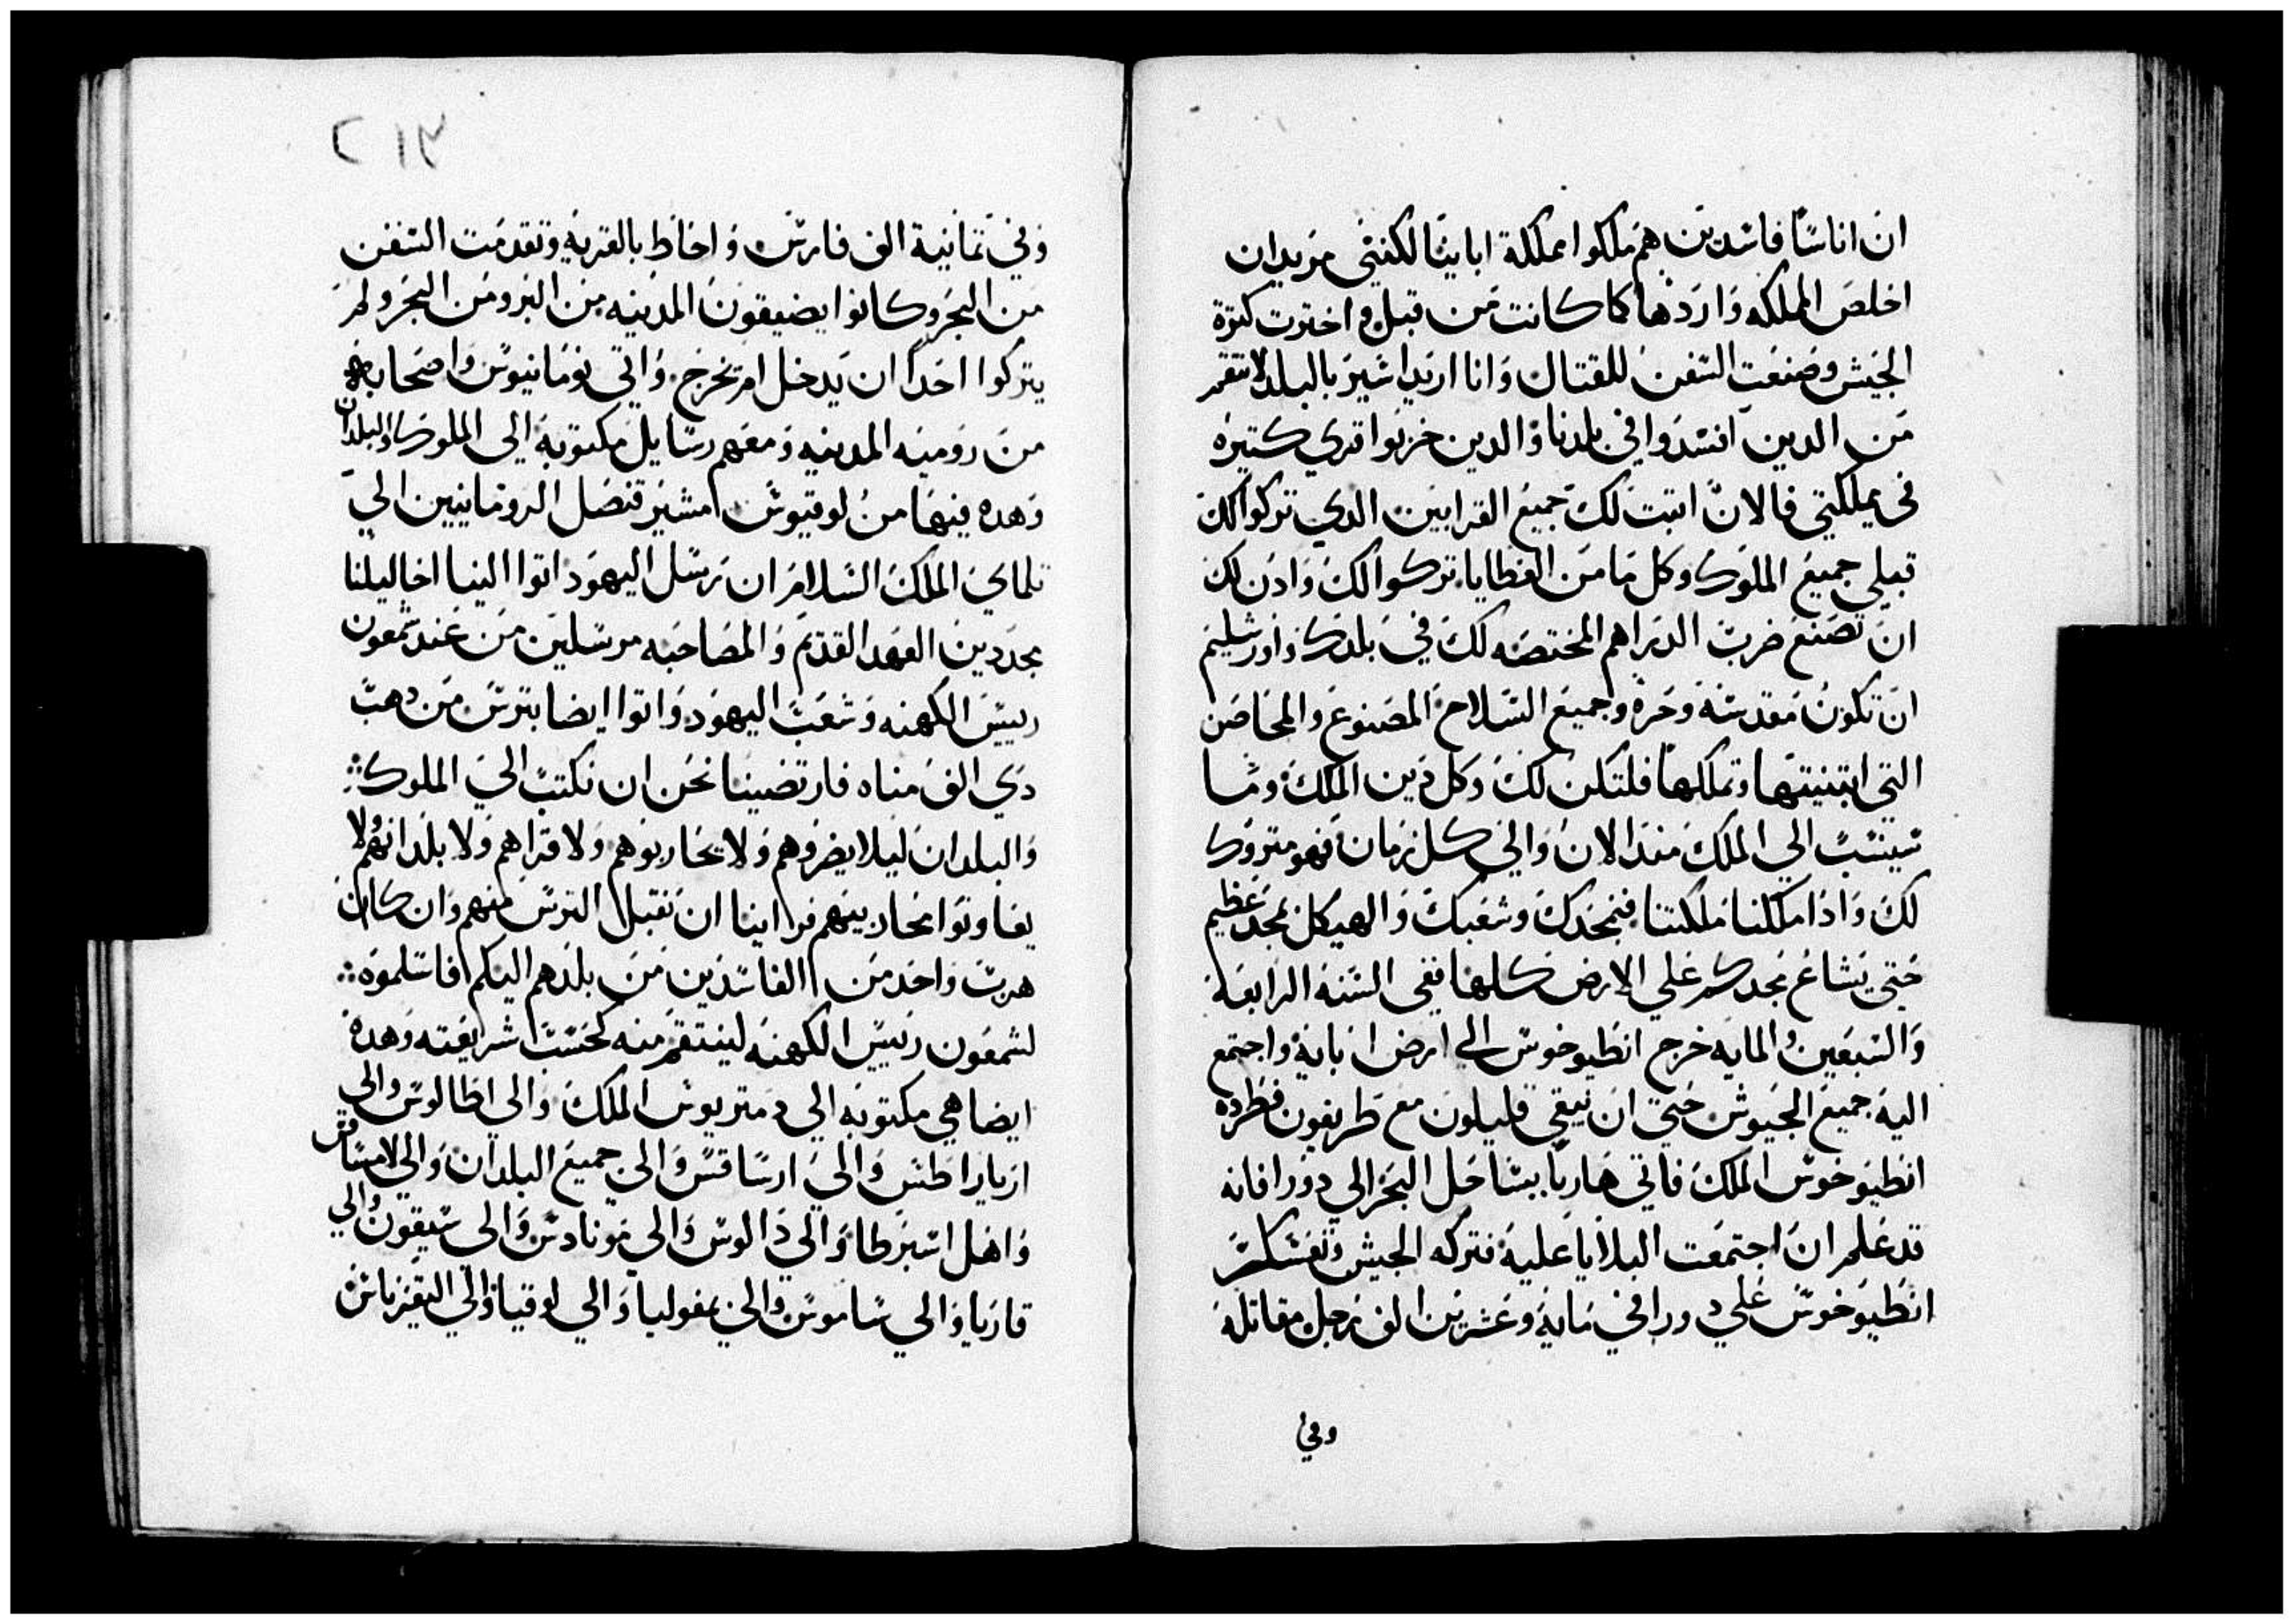 ان اناسًا فاسدين هم ملكوا مملكة اباينا لكنني مريدان
اخلص المملكه واردها كما كانت من قبل واخترت كترة
الجيش وصنعت السفن للقتال وانا اريد اشير بالبلد لانتقم
من الدين افسدوا في بلدنا والدين خربوا قري كتيره
في مملكتي فالان اتبت لك جميع القرابين الدي تركوا لك
قبلي جميع الملوك وكل ما من العطايا تركوا لك وادن لك
ان تصنع ضرب الدراهم المختصه لك في بلدك واورشليم
ان تكون مقدسة وحرة وجميع السلاح المصنوع والمحاصن
التي ابتنيتها وتملكها فلتكن لك وكل دين الملك وما
سينسب الي الملك مند الان والي كل زمان فهو متروك
لك وادا ملكنا ملكتنا فنمجدك وشعبك والهيكل بمجد عظيم
حتي يشاع مجدكم علي الارض كلها ففي السنة الرابعة
والسبعين والمايه خرج انطيوخوس الي ارض ابايه واجتمع
اليه جميع الجيوش حتي ان تبقي قليلون مع طريفون فطرده
انطيوخوس الملك فاتي هاربا بساحل البحر الي دورا فانه
قد علم ان اجتمعت البلايا عليه فتركه الجيش وتعسكر
انطيوخوس علي دورا في ماية وعشرين الف رجل مقاتلة
وفي
٢١٦
وفي تمانية الف فارس واحاط بالقريه وتقدمت السفن
من البحر وكانوا يضيقون المدينه من البر ومن البحر ولم
يتركوا احدا ان يدخل ام يخرج واتي نومانيوس واصحابه
من روميه المدينه ومعهم رسايل مكتوبة الي الملوك والبلدان
وهده فيها من لوقيوس امشير قنصل الرومانيين الي
تلماي الملك السلام ان رسل اليهود اتوا الينا احاليلنا
مجددين العهد القديم والمصاحبه مرسلين من عند شمعون
رييس الكهنه وشعب اليهود واتوا ايضا بترس من دهب
دي الف مناه فارتضينا نحن ان نكتب الي الملوك
والبلدان ليلا يضروهم ولا يحاربوهم ولا قراهم ولا بلدانهم ولا
يعاونوا محاربينهم فراينا ان نقبل الترس منهم وان كان
هرب واحد من الفاسدين من بلدهم اليكم فاسلموه
لشمعون رييس الكهنه لينتقم منه كحسب شريعته وهده
ايضا هي مكتوبه الي دمتريوس الملك والي اطالوس والي
ازياراطس والي ارساقس والي جميع البلدان والي لامساقس
واهل اسبرطا والي دالوس والي موندادس والي سيقون والي
قاريا والي ساموس والي بمفوليا والي لوقيا والي اليقرناس